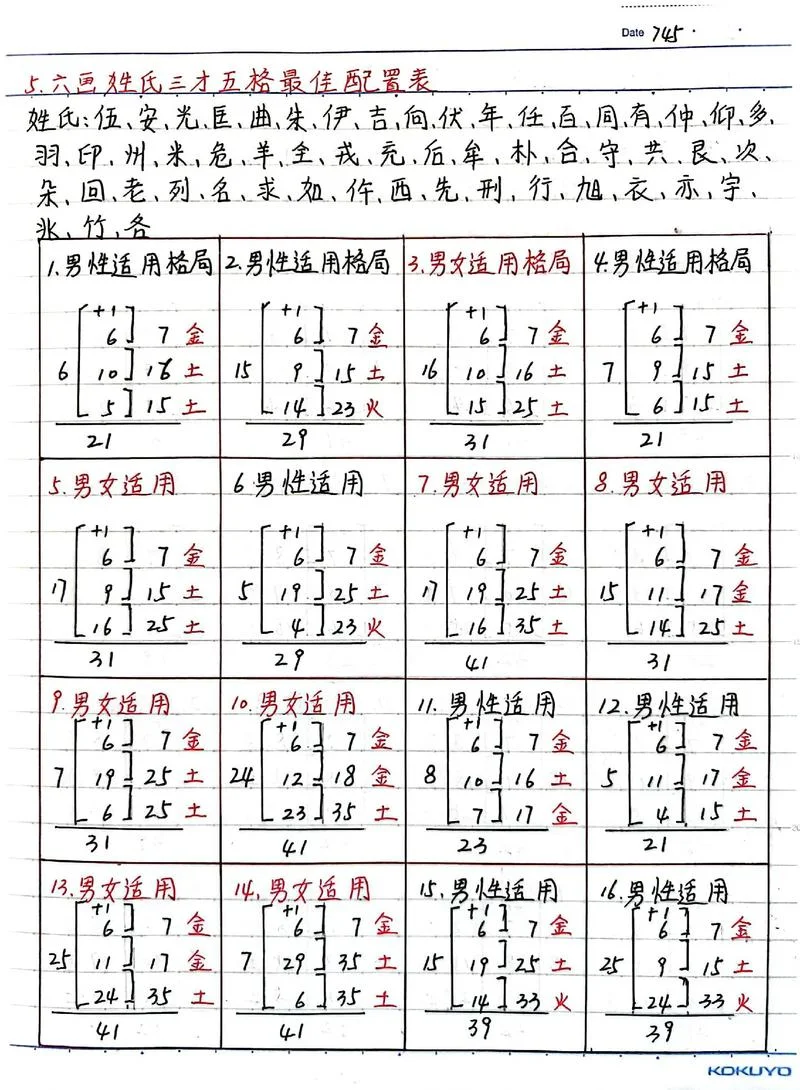 Date 745
5.六画姓氏三才五格最佳配置表
姓氏:伍、安、光、匡、曲、朱、伊、吉、向、伏、年、任、百、同、有、仲、仰、多、
羽、印、州、米、危、羊、全、戎、充、后、牟、朴、合、守、共、艮、次、
朵、回、老、列、名、求、如、仵、西、先、刑、行、旭、衣、亦、宇、
兆、竹、各
1.男性适用格局 2.男性适用格局 3.男女适用格局 4.男性适用格局
+1 +1 +1 +1
6 7 金 6 7 金 6 7 金 6 7 金
6 10 16 土 15 9 15 土 16 10 16 土 7 9 15 土
5 15 土 14 23 火 15 25 土 6 15 土
21 29 31 21
5.男女适用 6.男性适用 7.男女适用 8.男女适用
+1 +1 +1 +1
6 7 金 6 7 金 6 7 金 6 7 金
17 9 15 土 5 19 25 土 17 19 25 土 15 11 17 金
16 25 土 4 23 火 16 35 土 14 25 土
31 29 41 31
9.男女适用 10.男女适用 11.男性适用 12.男性适用
+1 +1 +1 +1
6 7 金 6 7 金 6 7 金 6 7 金
7 19 25 土 24 12 18 金 8 10 16 土 5 11 17 金
6 25 土 23 35 土 7 17 金 4 15 土
31 41 23 21
13.男女适用 14.男女适用 15.男性适用 16.男性适用
+1 +1 +1 +1
6 7 金 6 7 金 6 7 金 6 7 金
25 11 17 金 7 29 35 土 15 19 25 土 25 9 15 土
24 35 土 6 35 土 14 33 火 24 33 火
41 41 39 39
KOKUYO